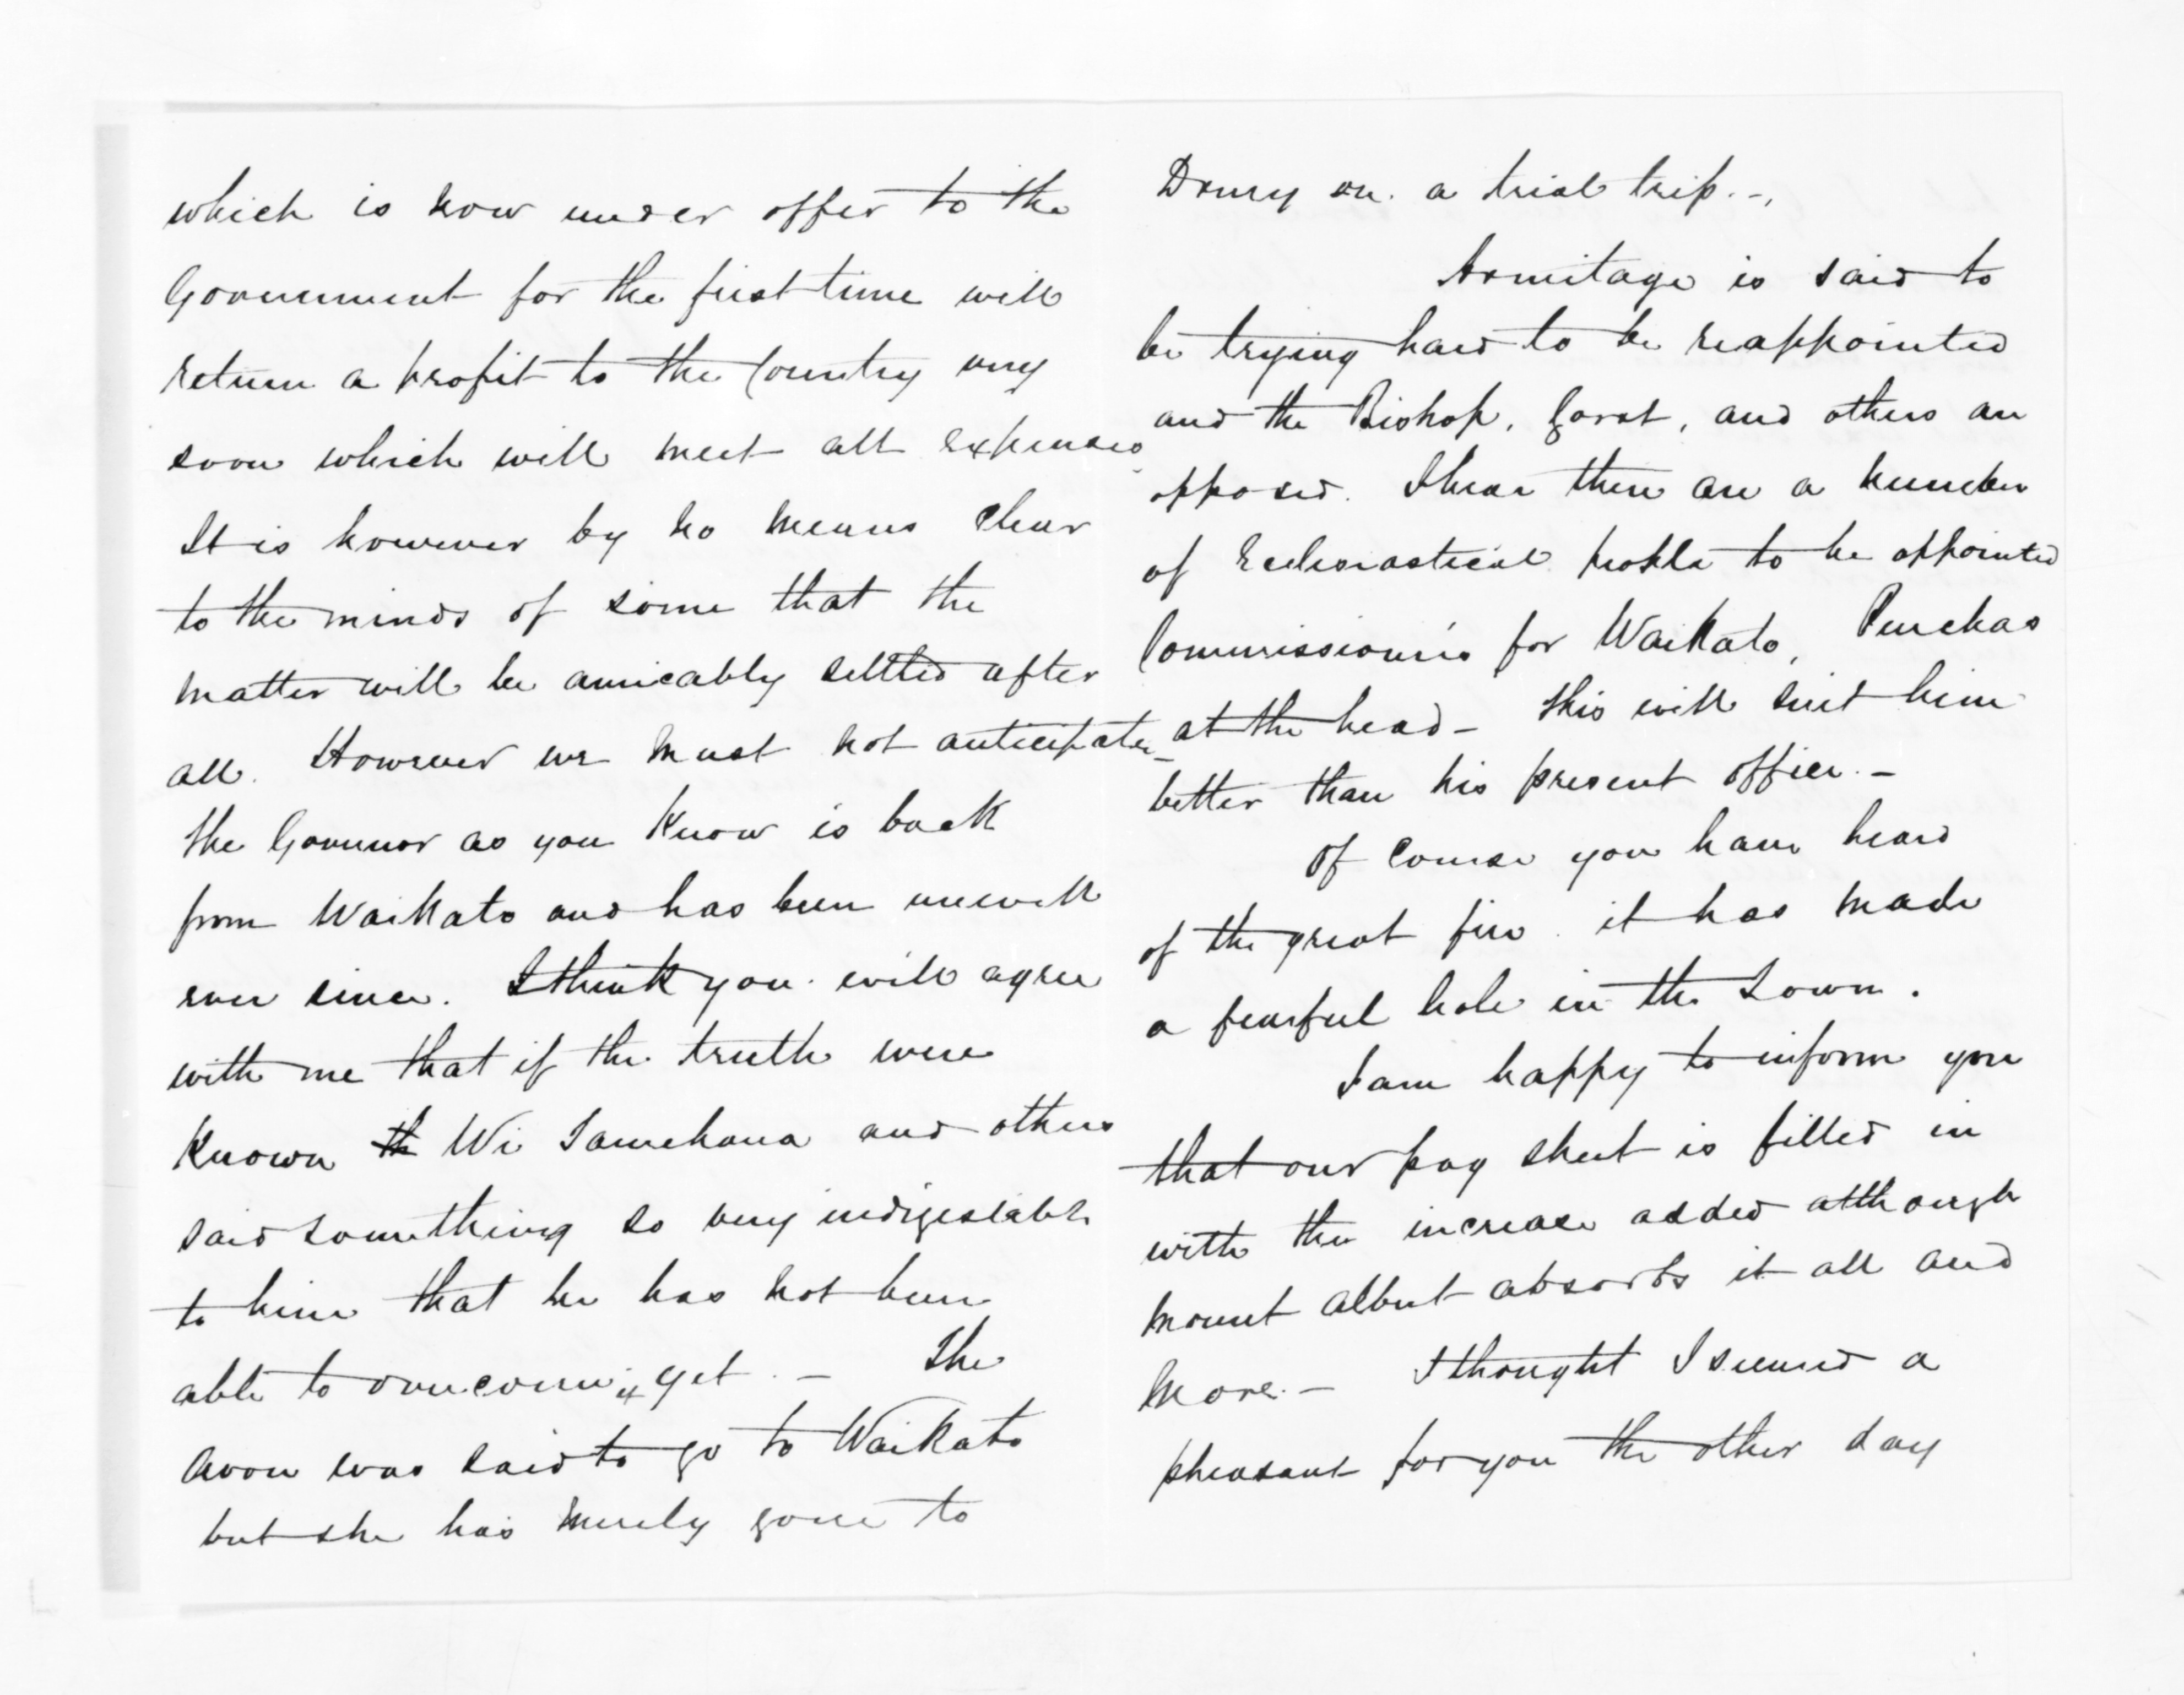 which is now under offer to the
Government for the first time will
return a profit to the Country very
soon which will meet all expenses
It is however by no means clear
to the minds of some that the
matter will be amicably settled after
all. However we must not anticipate
the Governor as you know is back
from Waikato and has been unwell
ever since. I think you will agree
with me that if the truth were
known th Wi Tamehana and others
said something so very indigestable
to him that he has not been
able to overcome it yet. — The
Avon was said to go to Waikato
but she has merely gone to
Drury on a trial trip. -
Armitage is said to
be trying hard to be reappointed
and the Bishop, Gorst, and others are
opposed. I hear there are a number
of Ecclesiastical people to be appointed
Commissioners for Waikato, Purchas
at the head - this will suit him
better than his present office. -
Of course you have heard
of the great fire. it has made
a fearful hole in the Town.
I am happy to inform you
that our pay sheet is filled in
with the increase added although
Mount Albert absorbs it all and
more. - I thought I secured a
pheasant for you the other day